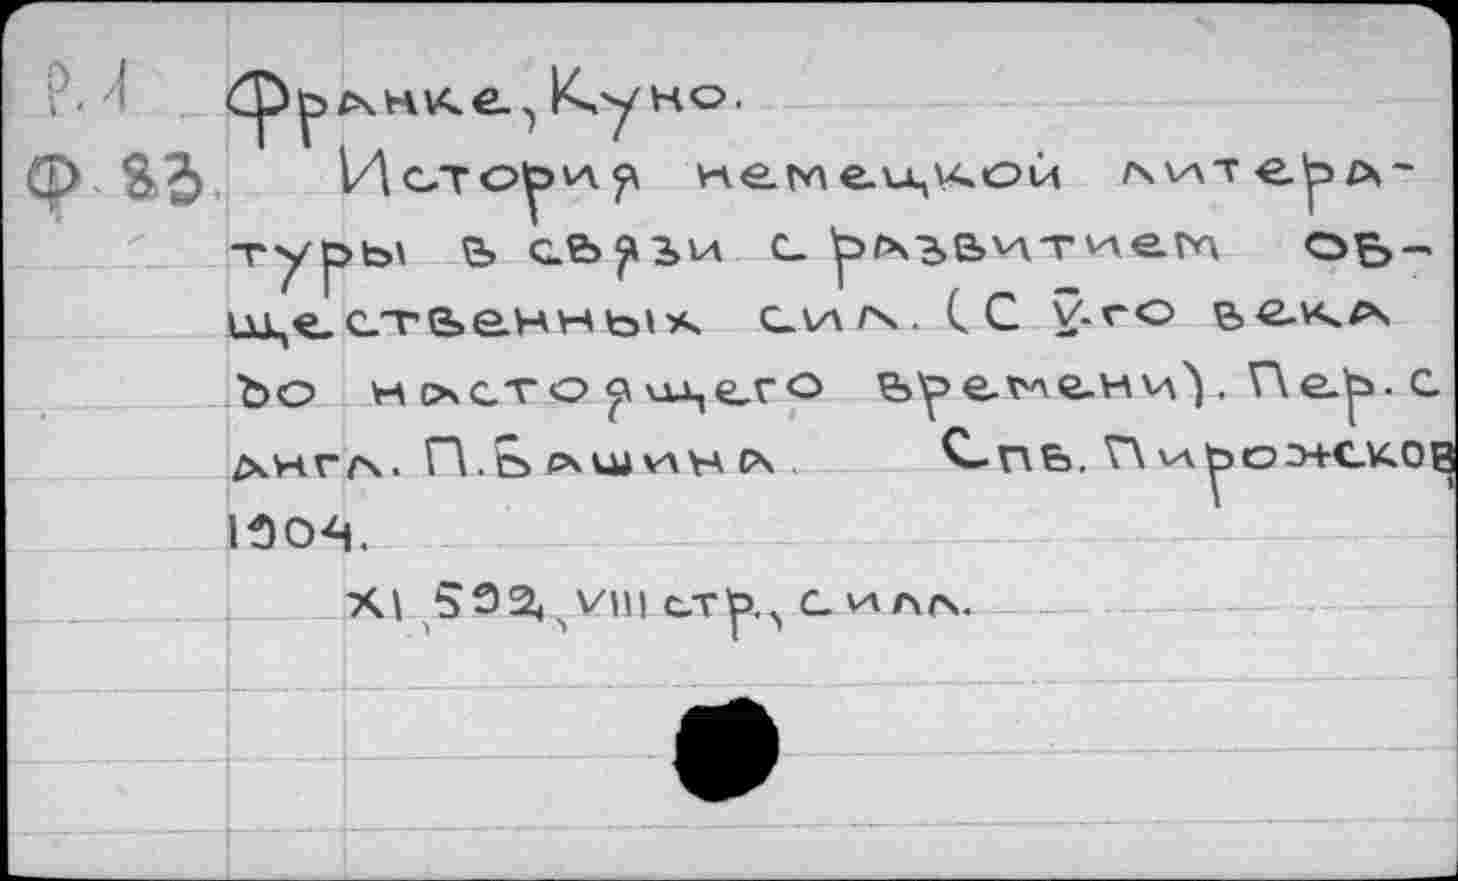 Р.1 Франке, Куно.
Ф 83 История немецкой литера-
туры в связи с развитием об-
щественных сил. (С V-го века
до настоящего времени). Пер. с
англ. П.Батина. Спб. Пирожсков,
1904.
XI, 592, VIII стр., с илл.